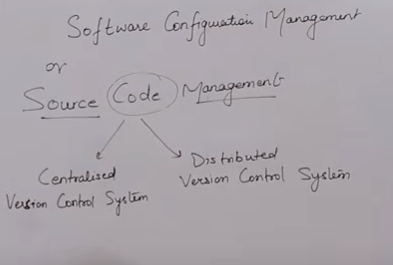 Software Configuration Management
or
Source Code Management
Centralised
Version Control System
Distributed
Version Control System